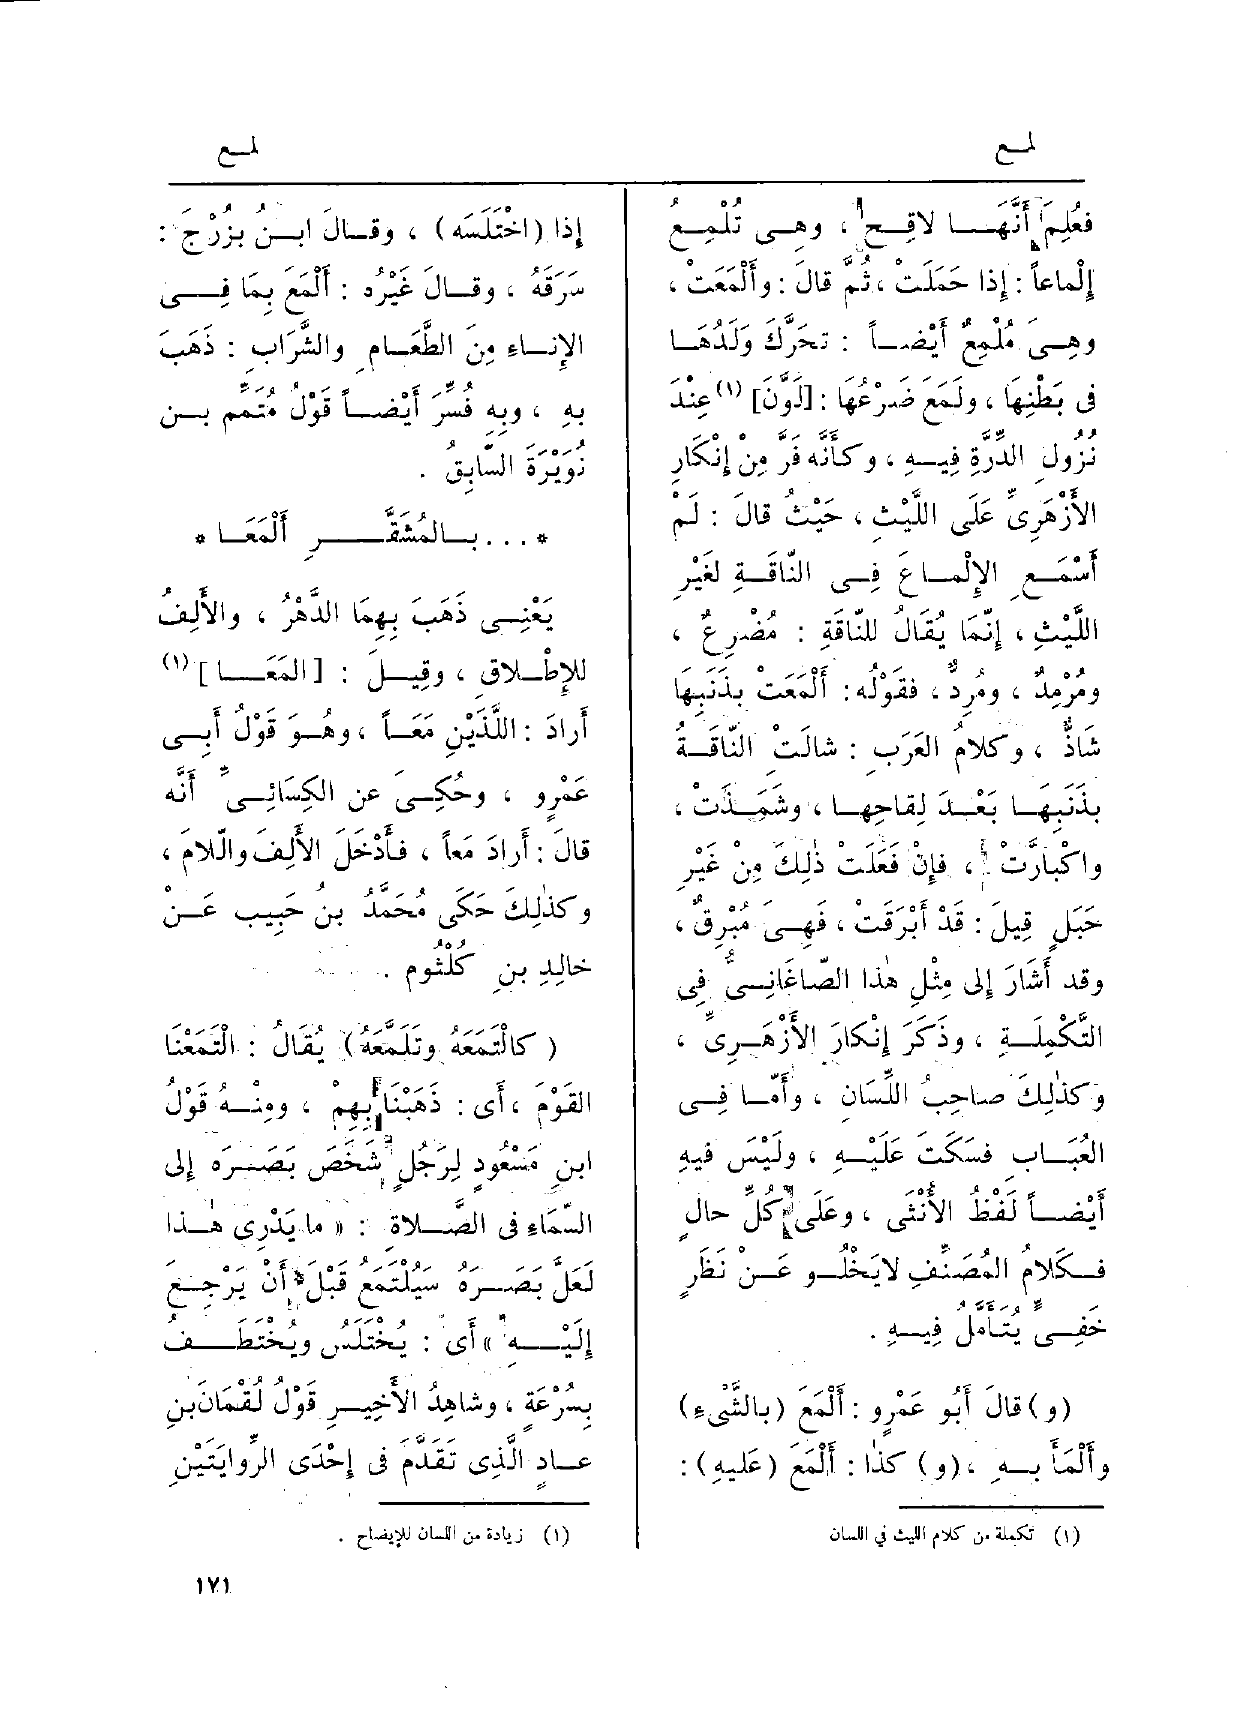 لمع
لمع
فعُلِمَ أَنَّهَا لاقِحٌ ، وهي تُلْمِعُ
إِلْماعاً : إذا حَمَلَتْ ، ثُمَّ قالَ : وأَلْمَعَتْ ،
وهِيَ مُلْمِعٌ أَيْضاً : تحَرَّكَ وَلَدُهَا
فى بَطْنِهَا ، ولَمَعَ ضَرْعُهَا : [لَوَّنَ] (١) عِنْدَ
نُزُولِ الدِّرَّةِ فِيهِ ، وكَأَنَّه فَرَّ مِنْ إِنْكَارِ
الأَزْهَرِىِّ عَلَى اللَّيْثِ ، حَيْثُ قالَ : لَمْ
أَسْمَعِ الإِلْمَاعَ فِى النّاقَةِ لغَيْرِ
اللَّيْثِ ، إِنَّمَا يُقَالُ للنّاقَةِ : مُضْرِعٌ ،
ومُرْمِدٌ ، ومُرِدٌّ ، فقَوْلُه : أَلْمَعَت بذَنَبِهَا
شاذٌّ ، وكَلامُ العَرَبِ : شالَتْ النّاقَةُ
بذَنَبِهَا بَعْدَ لِقاحِها ، وشَمَذَتْ ،
واكْبَارَّتْ ، فإِنْ فَعَلَت ذٰلِكَ مِنْ غَيْرِ
حَبَلٍ قِيلَ : قَدْ أَبْرَقَت ، فَهِىَ مُبْرِقٌ ،
وقد أَشَارَ إِلى مِثْلِ هٰذا الصّاغَانِىُّ فى
التَّكْمِلَةِ ، وذَكَرَ إِنْكارَ الأَزْهَرِىِّ ،
وكَذٰلِكَ صاحِبُ اللِّسَانِ ، وأَمّا فِى
العُبَابِ فسَكَتَ عَلَيْهِ ، ولَيْسَ فيهِ
أَيْضاً لَفْظُ الأُنْثَى ، وعَلَى كُلِّ حالٍ
فكَلامُ المُصَنِّفِ لايَخْلُو عَنْ نَظَرٍ
خَفِىٍّ يُتَأَمَّلُ فِيهِ .
(و) قالَ أَبُو عَمْرٍو : أَلْمَعَ (بالشَّىْءِ)
وأَلْمَأَ بهِ ، (و) كَذَا : أَلْمَعَ (عَلَيهِ) :
(١) تكملة من كلام الليث في اللسان
إذا (اخْتَلَسَه) ، وقالَ ابنُ بُزُرْجَ :
سَرَقَهُ ، وقالَ غَيْرُه : أَلْمَعَ بِمَا فِى
الإِناءِ مِنَ الطَّعَامِ والشَّرَابِ : ذَهَبَ
بهِ ، وبِهِ فُسِّرَ أَيْضاً قَوْلُ مُتَمِّم بن
نُوَيْرَةَ السّابِقُ .
* ... بالمُشَقَّرِ أَلْمَعَا *
يَعْنِى ذَهَبَ بِهِمَا الدَّهْرُ ، والأَلِفُ
للإِطْلاقِ ، وقِيلَ : [أَلْمَعَا] (١)
أَرادَ : اللَّذَيْنِ مَعاً ، وهُو قَوْلُ أَبِى
عَمْرٍو ، وحُكِىَ عن الكِسَائِىِّ أَنَّه
قالَ : أَرادَ مَعاً ، فأَدْخَلَ الأَلِفَ والّلامَ ،
وكَذٰلِكَ حَكَى مُحَمَّدُ بنُ حَبِيب عَنْ
خالِدِ بنِ كُلْثُوم .
(كالْتَمَعَهُ وتَلَمَّعَهُ) يُقَالُ : الْتَمَعْنَا
القَوْمَ ، أَى : ذَهَبْنَا بِهِمْ ، ومِنْهُ قَوْلُ
ابنِ مَسْعُودٍ لِرَجُلٍ شَخَصَ بَصَرَه إِلى
السَّمَاءِ فى الصَّلاةِ : « ما يَدْرِى هٰذا
لَعَلَّ بَصَرَهُ سَيُلْتَمَعُ قَبْلَ أَنْ يَرْجِعَ
إِلَيْهِ » أَى : يُخْتَلَسُ ويُخْتَطَفُ
بِسُرْعَةٍ ، وشاهِدُ الأَخِيرِ قَوْلُ لُقْمَانَ بنِ
عادٍ الَّذِى تَقَدَّمَ فى إِحْدَى الرِّوايَتَيْنِ
(١) زيادة من اللسان للإيضاح .
١٧١